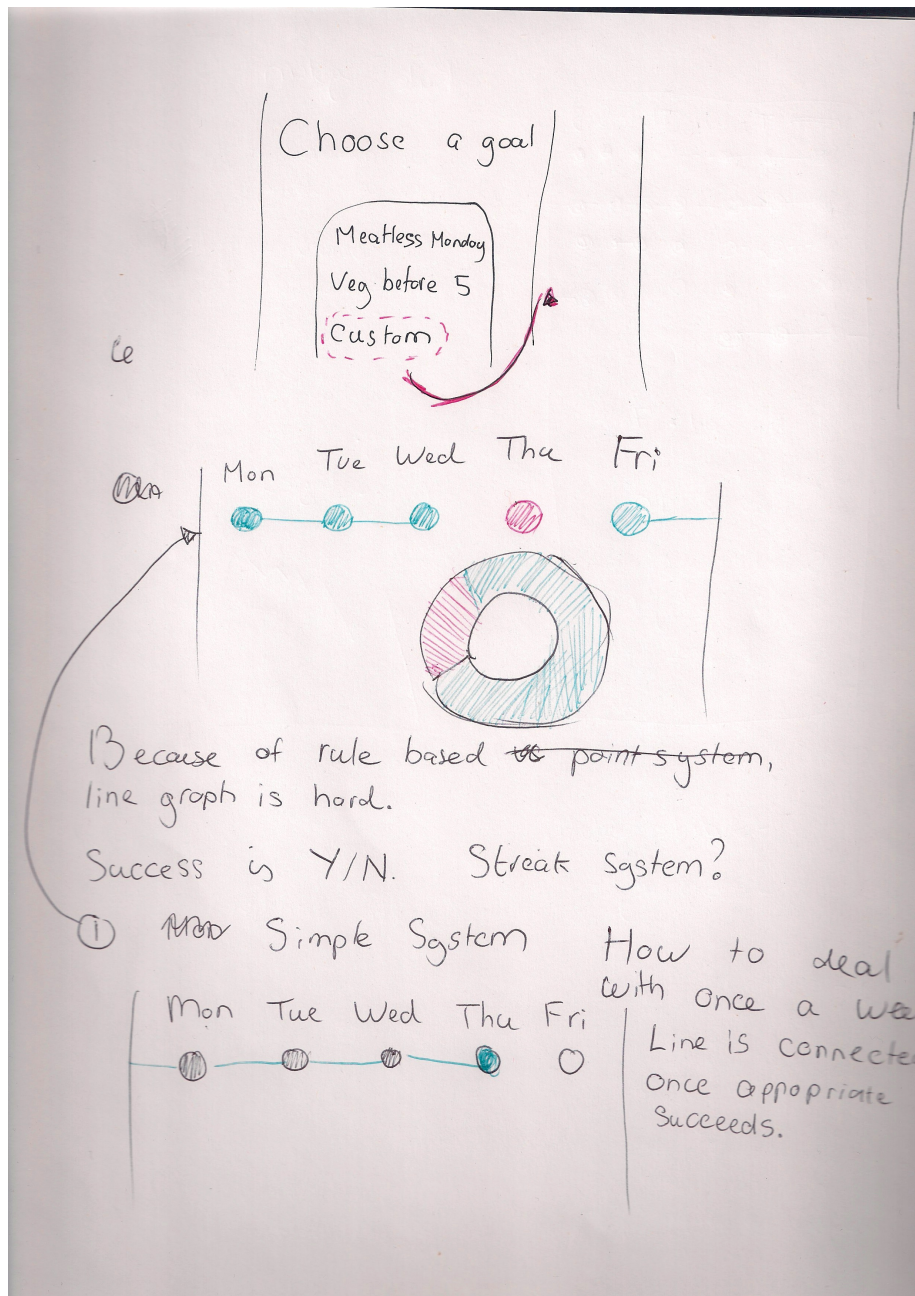 Choose a goal
Meatless Monday
Veg before 5
Custom
Mon Tue Wed Thu Fri
Because of rule based vs point system,
line graph is hard.
Success is Y/N. Streak system?
1 Simple System
How to deal
with once a wee
Mon Tue Wed Thu Fri
Line is connecte
once appopriate
succeeds.